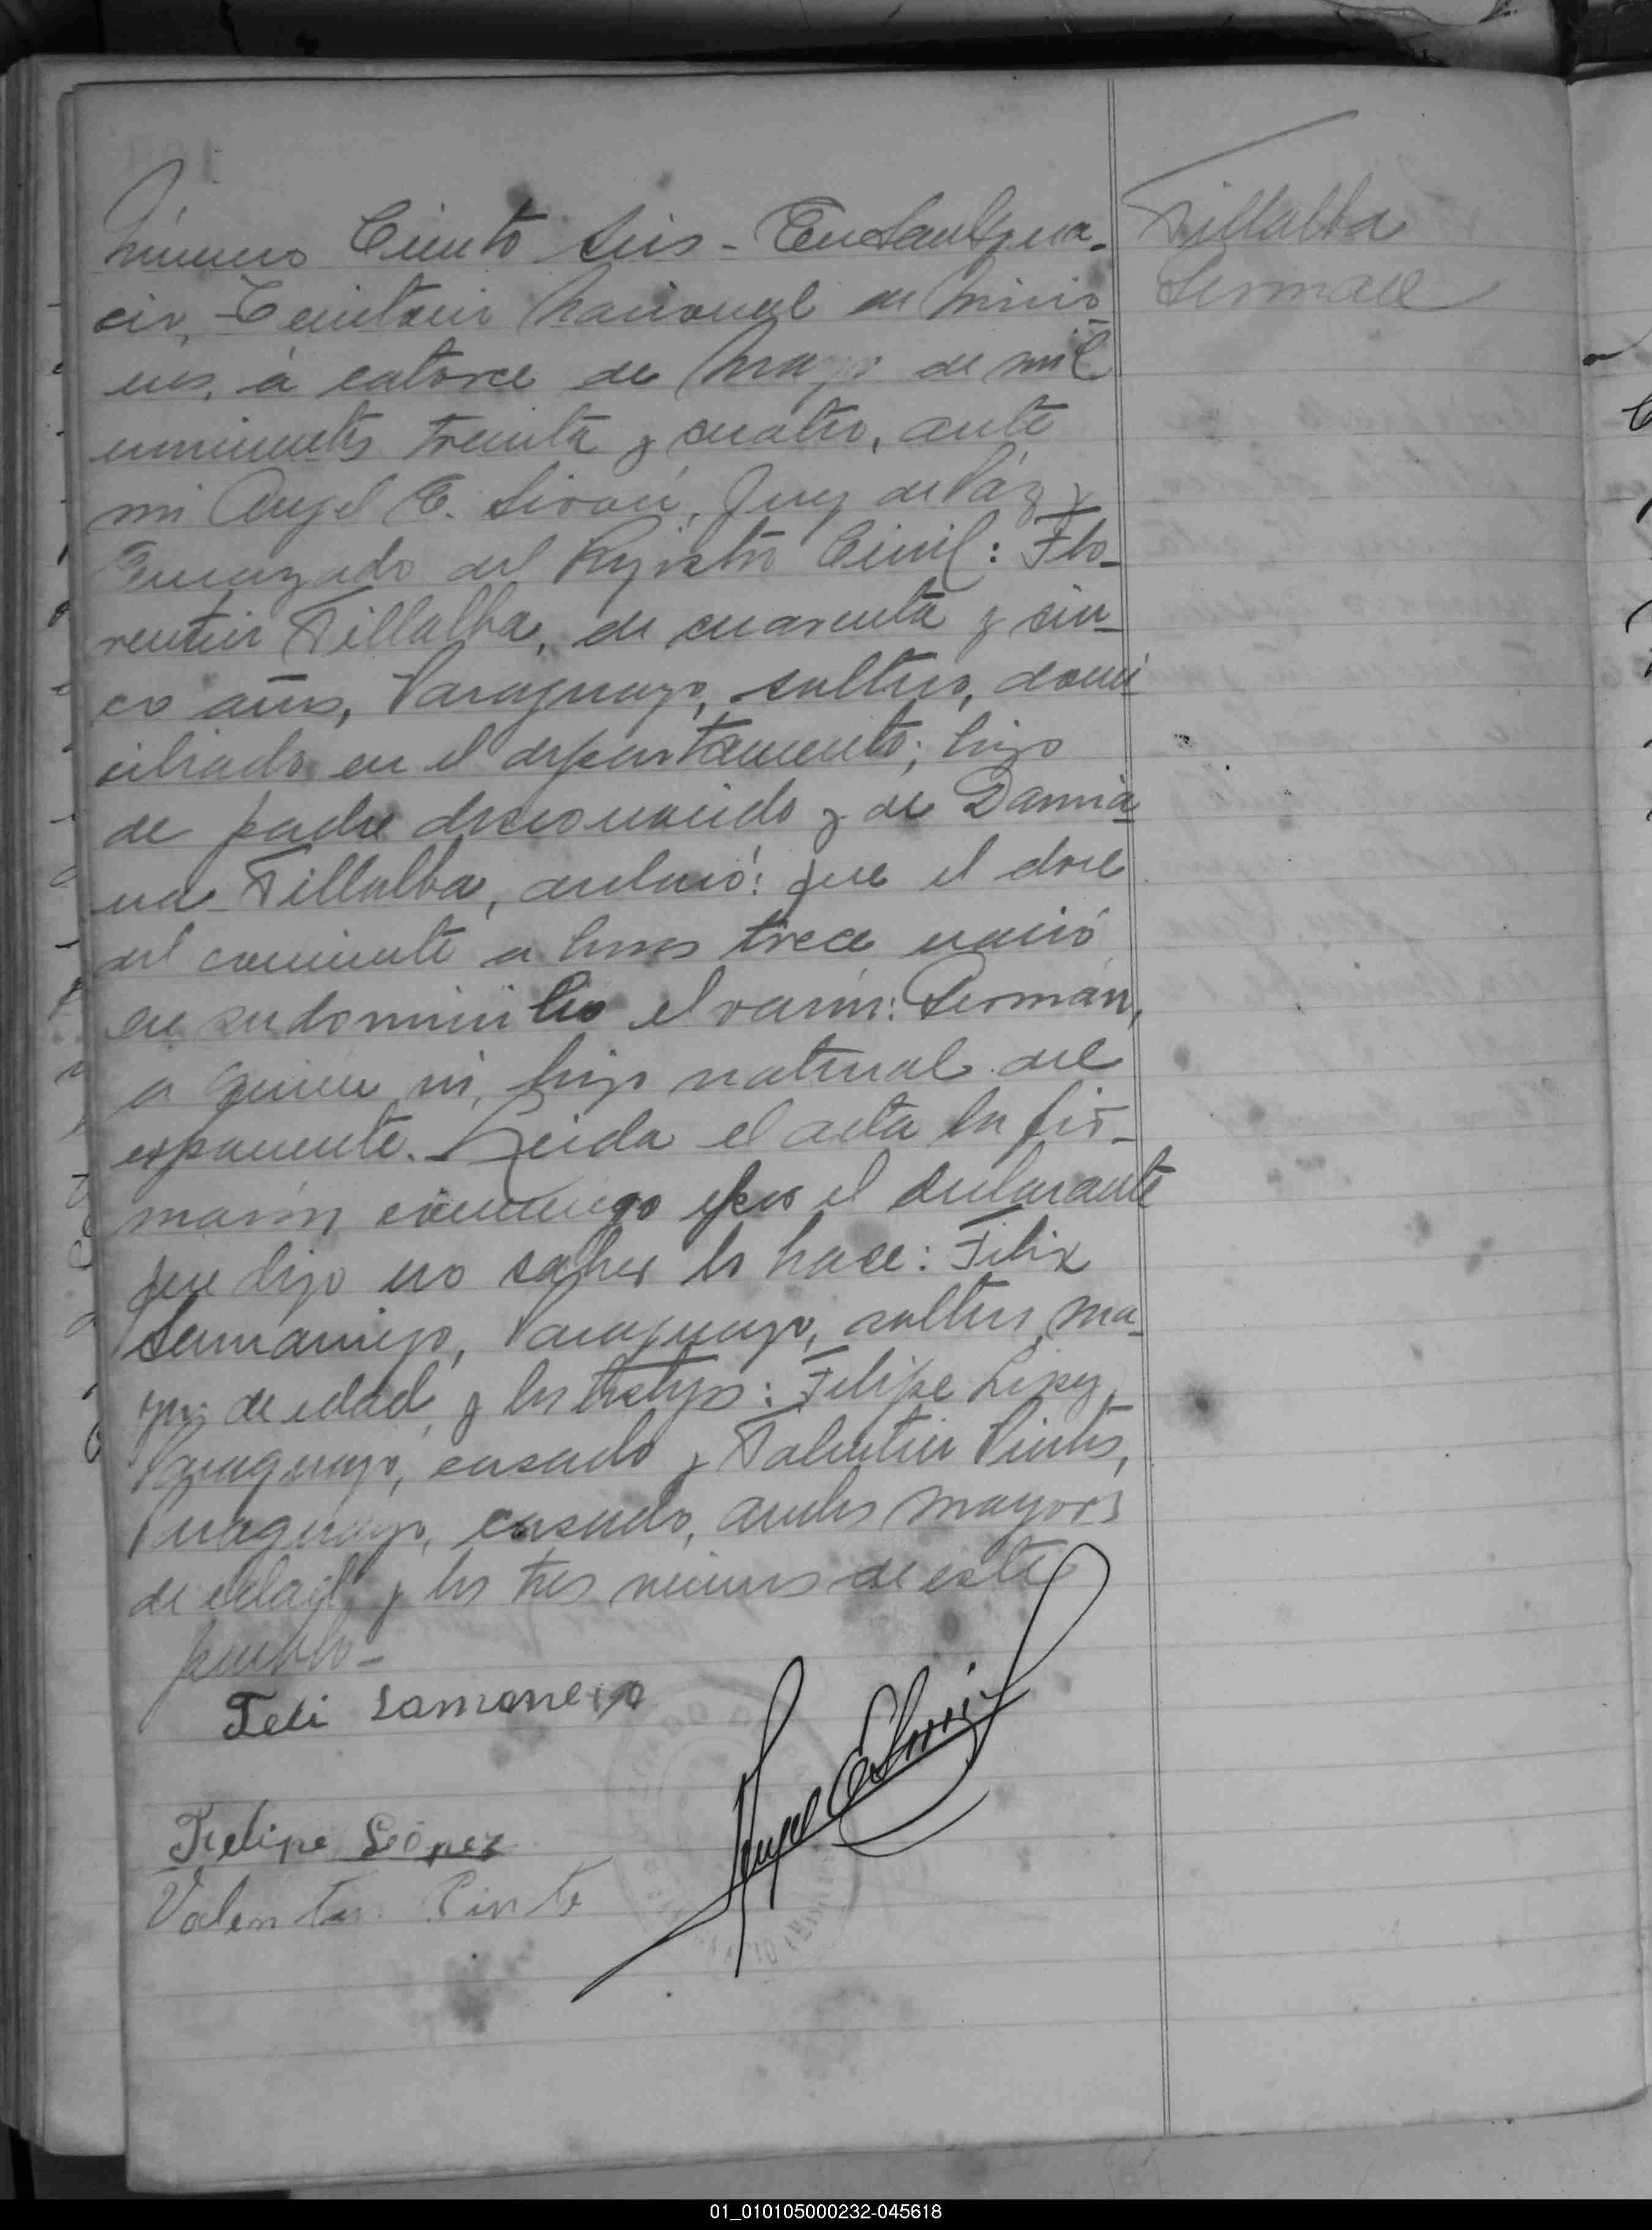 Número Ciento seis - En San Igna-
cio, Territorio Nacional de Misio-
nes, á catorce de Mayo de mil
novecientos treinta y cuatro, ante
mi Angel E. Juez de Páz y
Encargado del Registro Civil: Flo-
rentin Villalba, de cuarenta y cin-
co años, Paraguayo, soltero, domi
ciliado en el departamento; hijo
de padre desconocido y de Damia
na Villalba, declaró: que el doce
del corriente a horas trece nació
en su domicilio el varón: Germán,
a quien vi, hijo natural del
exponente. Leida el acta la fir-
maron conmigo por el declarante
que dijo no saber lo hace: Felix
Samaniego, Paraguayo, soltero, ma-
yor de edad, y los testigos: Felipe Lopez,
Paraguayo, casado y Valentin Pinto,
Paraguayo, casado, ambos mayores
de edad y los tres vecinos de este
pueblo -
Villalba
German
Feli Samaneigo
Felipe Leópez
Valentin Pinto
Angel E
01_010105000232-045618